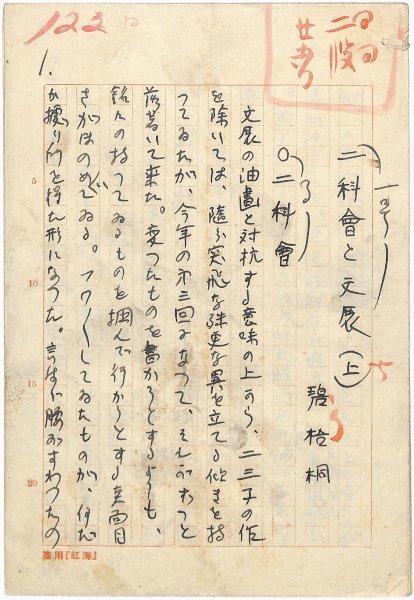 123
二科會と文展（上）
碧梧桐
○二科會
文展の油畫と対抗する意味の上から、二三子の作
を除いては、隨分突飛な殊更な異を立てる傾きを持
つてゐたが、今年の第三回になつて、それがずつと
落着いて来た。変つたものを書かうとするよりも、
銘々の持つてゐるものを掴んで行かうとする真面目
さがほのめいでゐる。フワ〳〵してゐたものが、何だ
か據り所を得た形になつた。言はゞ腰がすわつたの
1.
5
10
15
20
海紅用箋